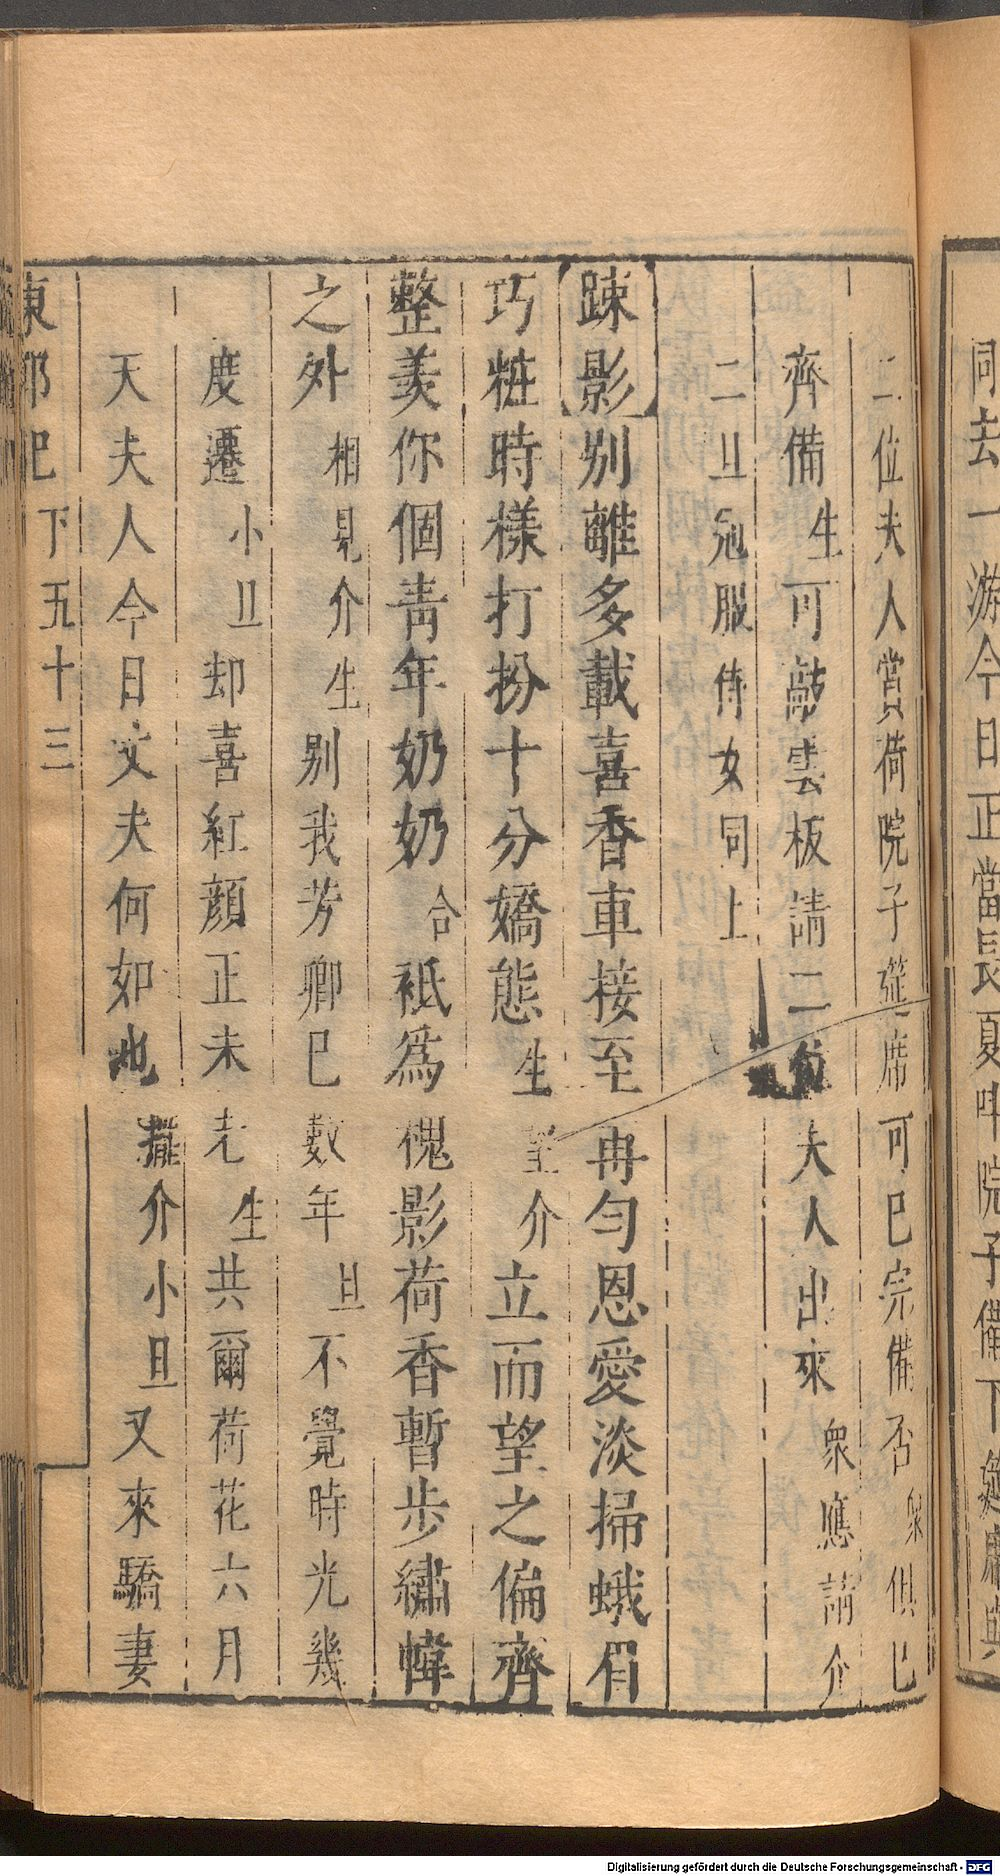 同去一游今日正當長夏中院子備下筵席與
二位夫人賞荷院子筵席可已完備否衆俱已
齊備生可敲雲板請二位夫人出來衆應請介
二旦冠服侍女同上
踈影別離多載喜香車接至冉匀恩愛淡掃蛾眉
巧粧時樣打扮十分嬌態生望介立而望之偏齊
整羡你個青年奶奶合袛爲槐影荷香暫步繡幃
之外相見介生别我芳卿已數年旦不覺時光幾
度遷小旦却喜紅顔正未老生共爾荷花六月
天夫人今日丈夫何如也擺介小旦又來驕妻
東郭記下五十三
Digitalisierung gefördert durch die Deutsche Forschungsgemeinschaft - DFG